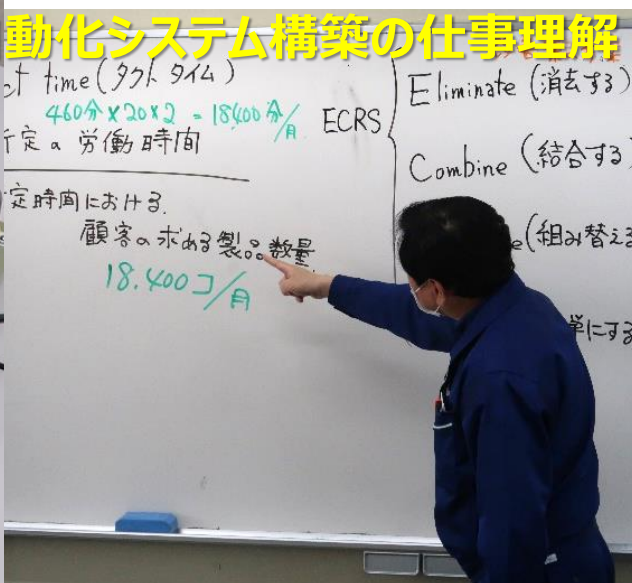 動化システム構築の仕事理解
ct time(タクトタイム)
460分×20×2 = 18,400分/月
所定の労働時間
定時間における
顧客の求める製品数量
18.400コ/月
ECRS
Eliminate (消去する)
Combine (結合する)
e(組み替える
単にする